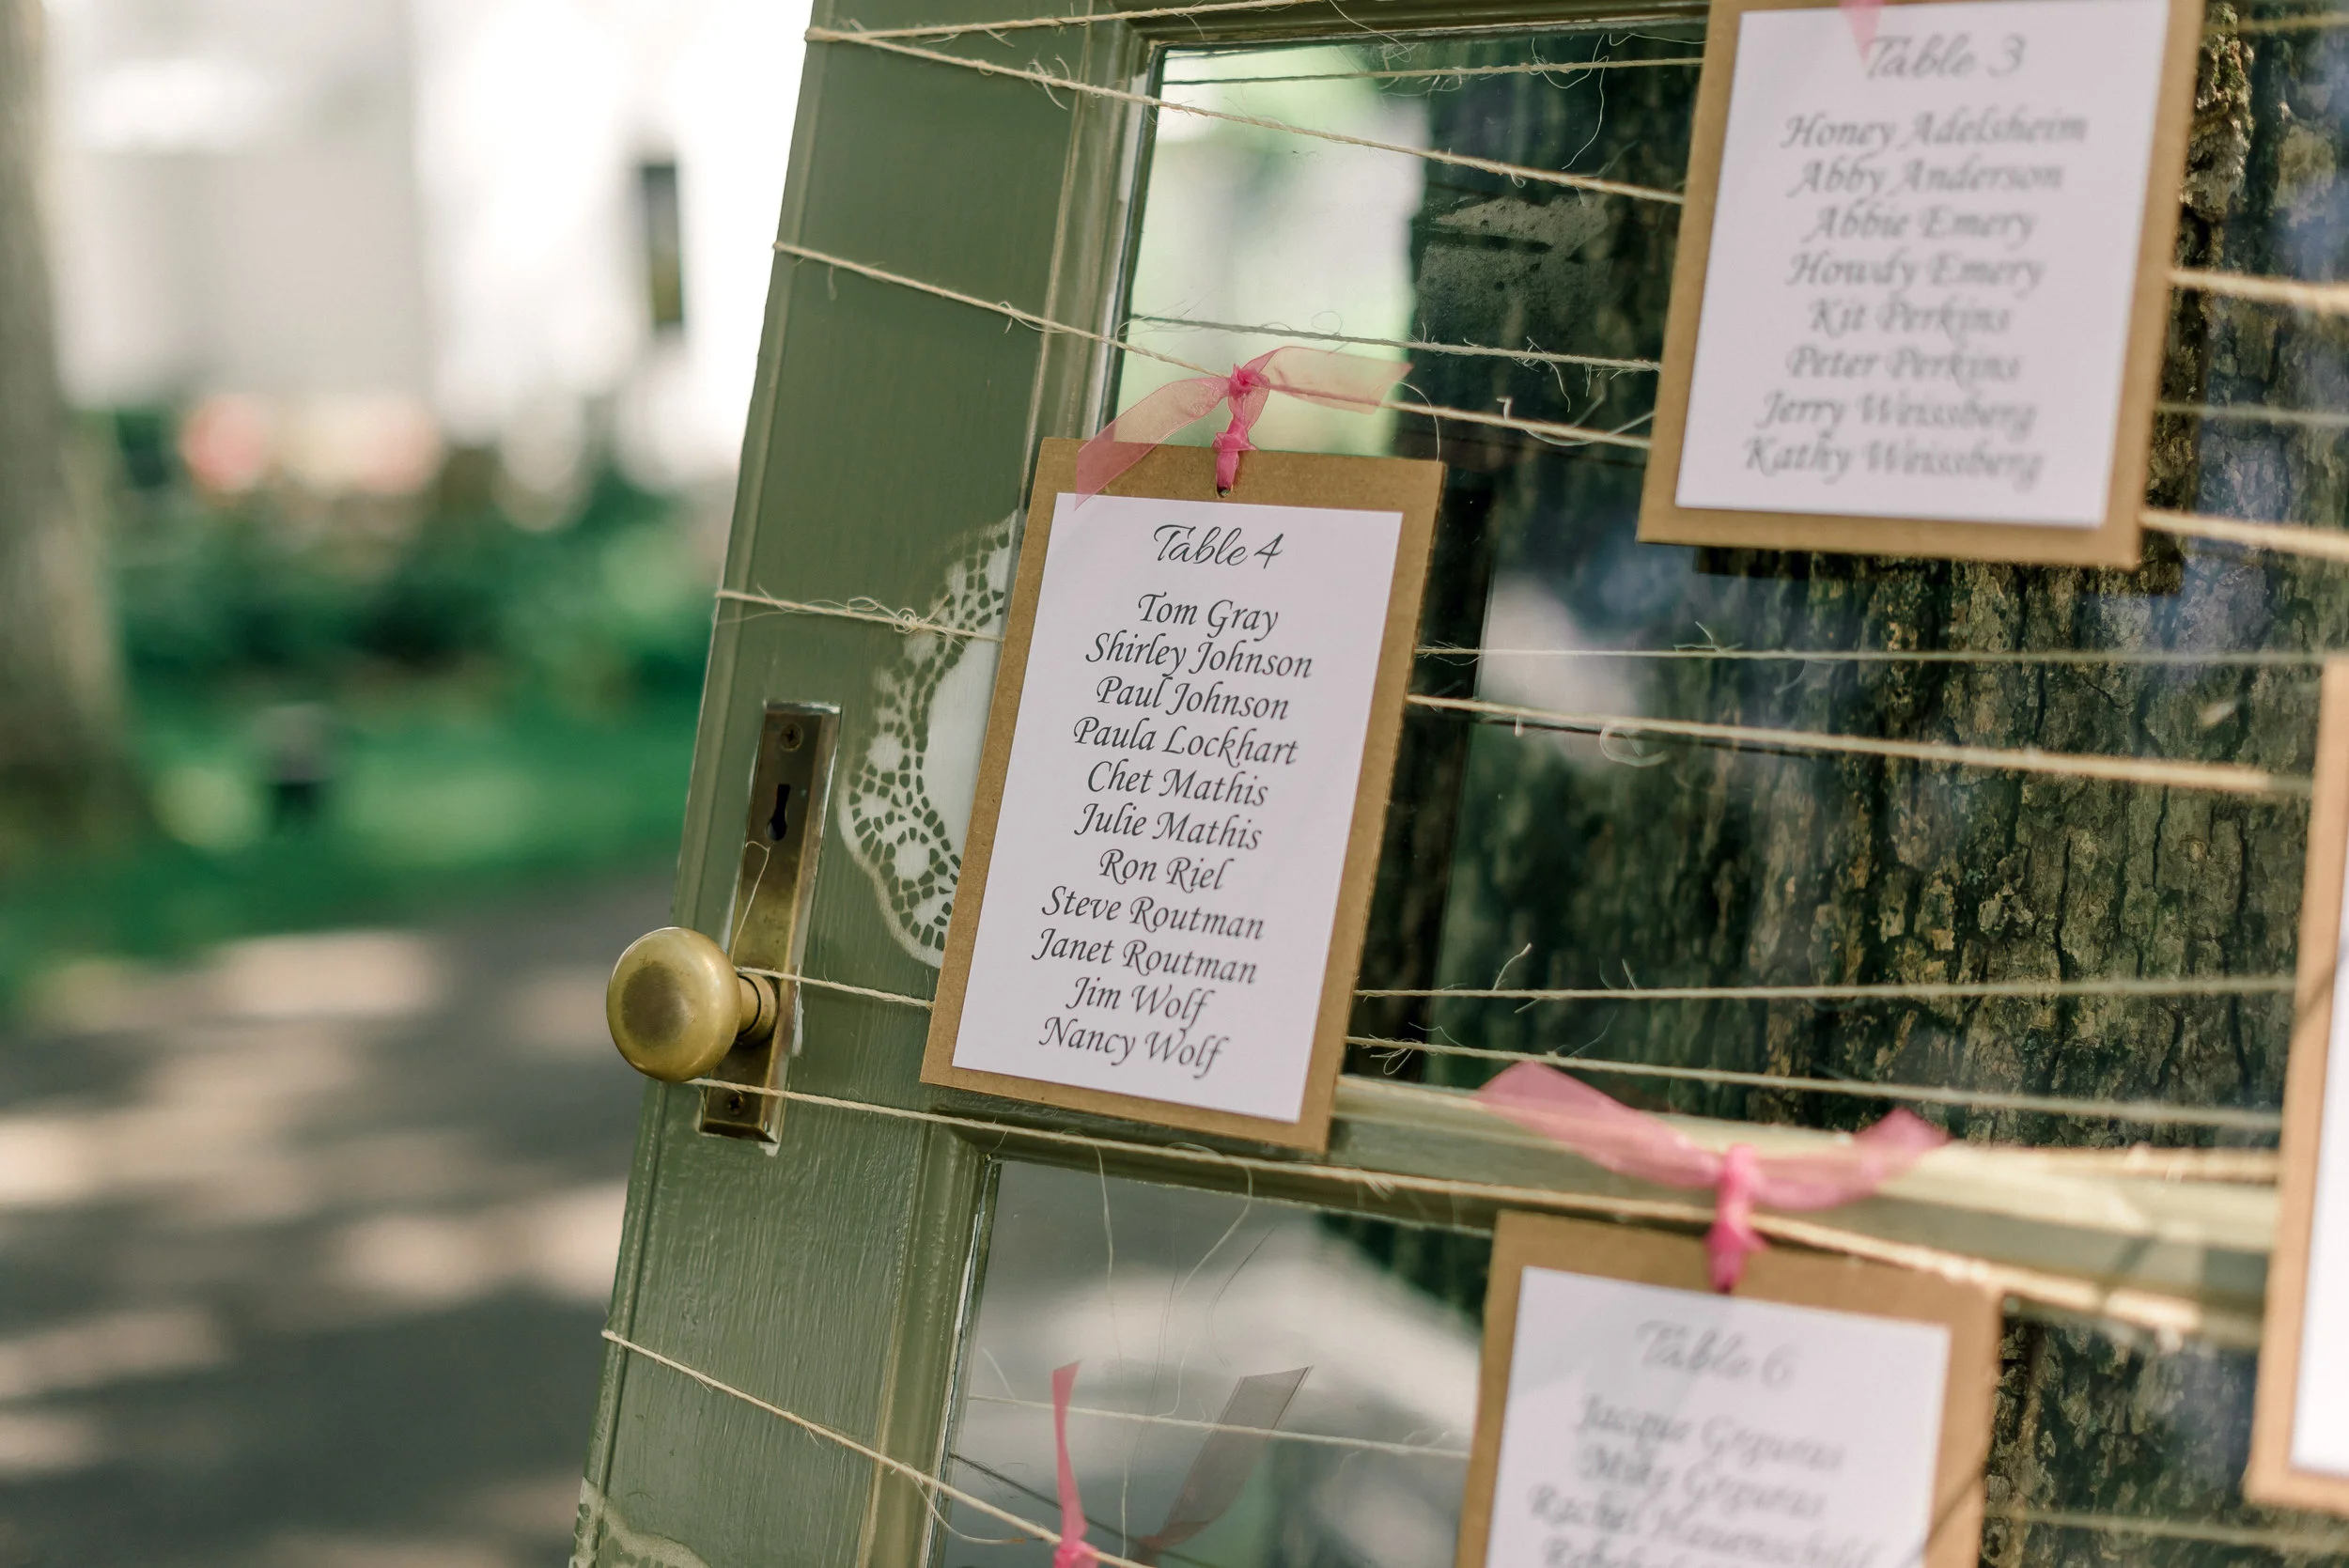 Table 3
Honey Adelsheim
Abby Anderson
Abbie Emery
Howdy Emery
Kit Perkins
Peter Perkins
Jerry Weissberg
Kathy Weissberg
Table 4
Tom Gray
Shirley Johnson
Paul Johnson
Paula Lockhart
Chet Mathis
Julie Mathis
Ron Riel
Steve Routman
Janet Routman
Jim Wolf
Nancy Wolf
Table 6
Jacqie
Mike
Rachel